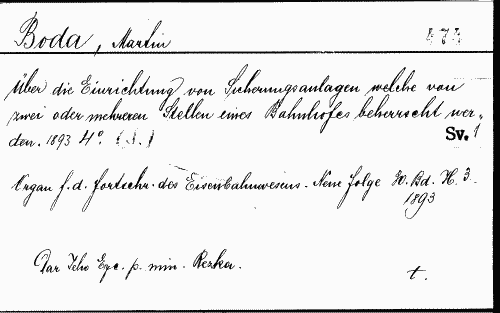 Boda, Martin 474
Über die Einrichtung von Sicherungsanlagen welche von
zwei oder mehreren Stellen eines Bahnhofes beherrscht wer-
den. 1893 4°. (S.) Sv. 1
Organ f. d. Fortschr. des Eisenbahnwesens. Neue Folge 30. Bd. H. 3.
1893
Dar Jeho Exc. p. min. Rezka.
t.